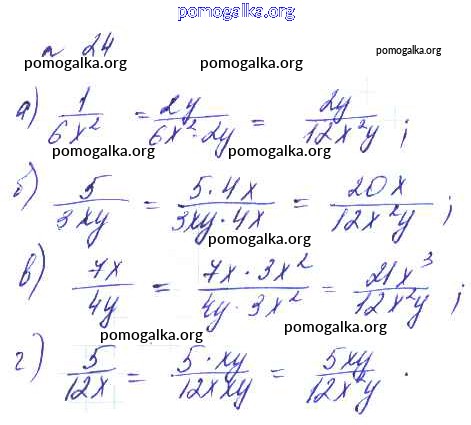 pomogalka.org
№ 24
pomogalka.org pomogalka.org pomogalka.org
а) 1/(6x²) = 2y/(6x²·2y) = 2y/(12x²y) ;
pomogalka.org pomogalka.org
б) 5/(3xy) = (5·4x)/(3xy·4x) = 20x/(12x²y) ;
pomogalka.org
в) 7x/(4y) = (7x·3x²)/(4y·3x²) = 21x³/(12x²y) ;
pomogalka.org pomogalka.org
г) 5/(12x) = (5·xy)/(12xxy) = 5xy/(12x²y) .
pomogalka.org